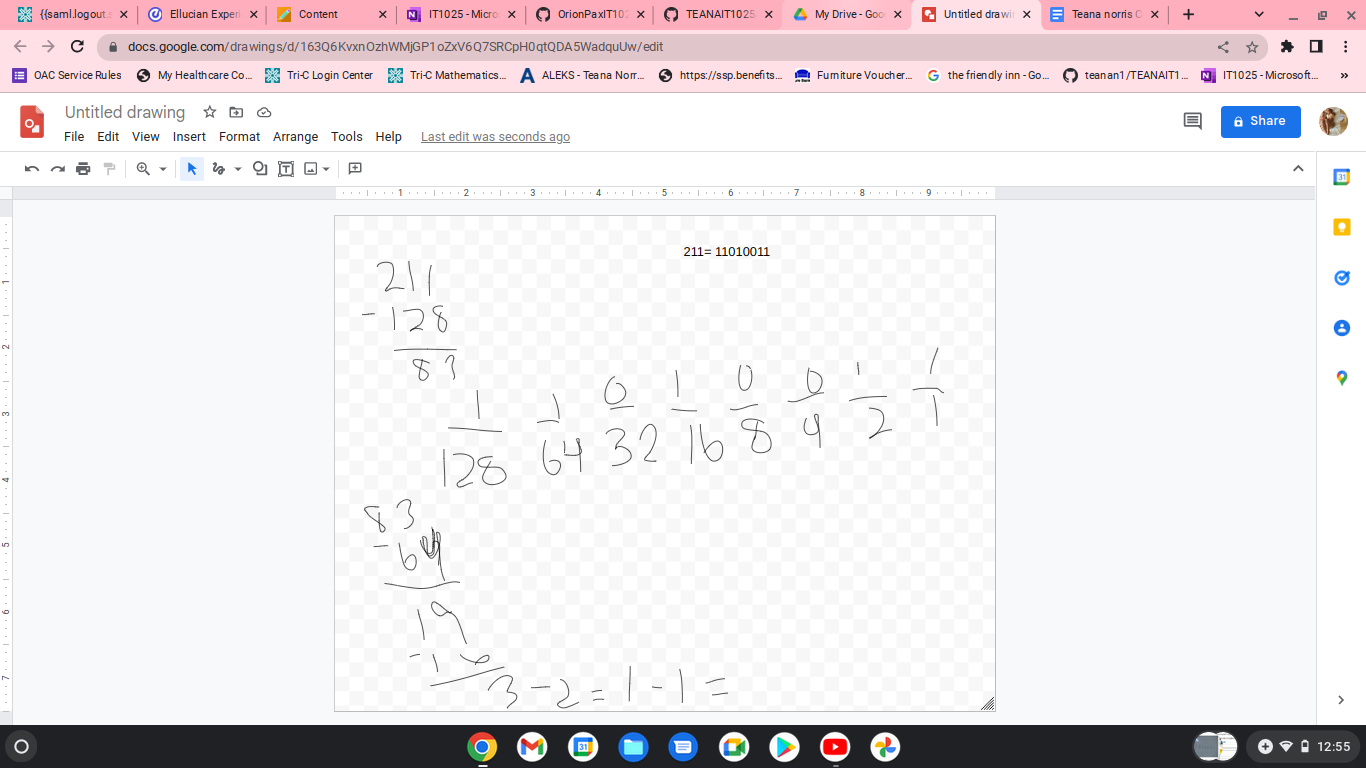 {{saml.logout.
Ellucian Experi
Content
IT1025 - Micros
OrionPaxIT102
TEANAIT1025
My Drive - Goo
Untitled drawin
Teana norris C
docs.google.com/drawings/d/163Q6KvxnOzhWMjGP1oZxV6Q7SRCpH0qtQDA5WadquUw/edit
OAC Service Rules
My Healthcare Co...
Tri-C Login Center
Tri-C Mathematics...
ALEKS - Teana Norr...
https://ssp.benefits...
Furniture Voucher...
the friendly inn - Go...
teanan1/TEANAIT1...
IT1025 - Microsoft...
»
Untitled drawing
File Edit View Insert Format Arrange Tools Help Last edit was seconds ago
Share
1 2 3 4 5 6 7 8 9
1
2
3
4
5
6
7
211= 11010011
211
-128
83
1 1 0 1 0 0 1 1
128 64 32 16 8 4 2 1
83
-64
19
-16
3 - 2 = 1 - 1 =
31
12:55